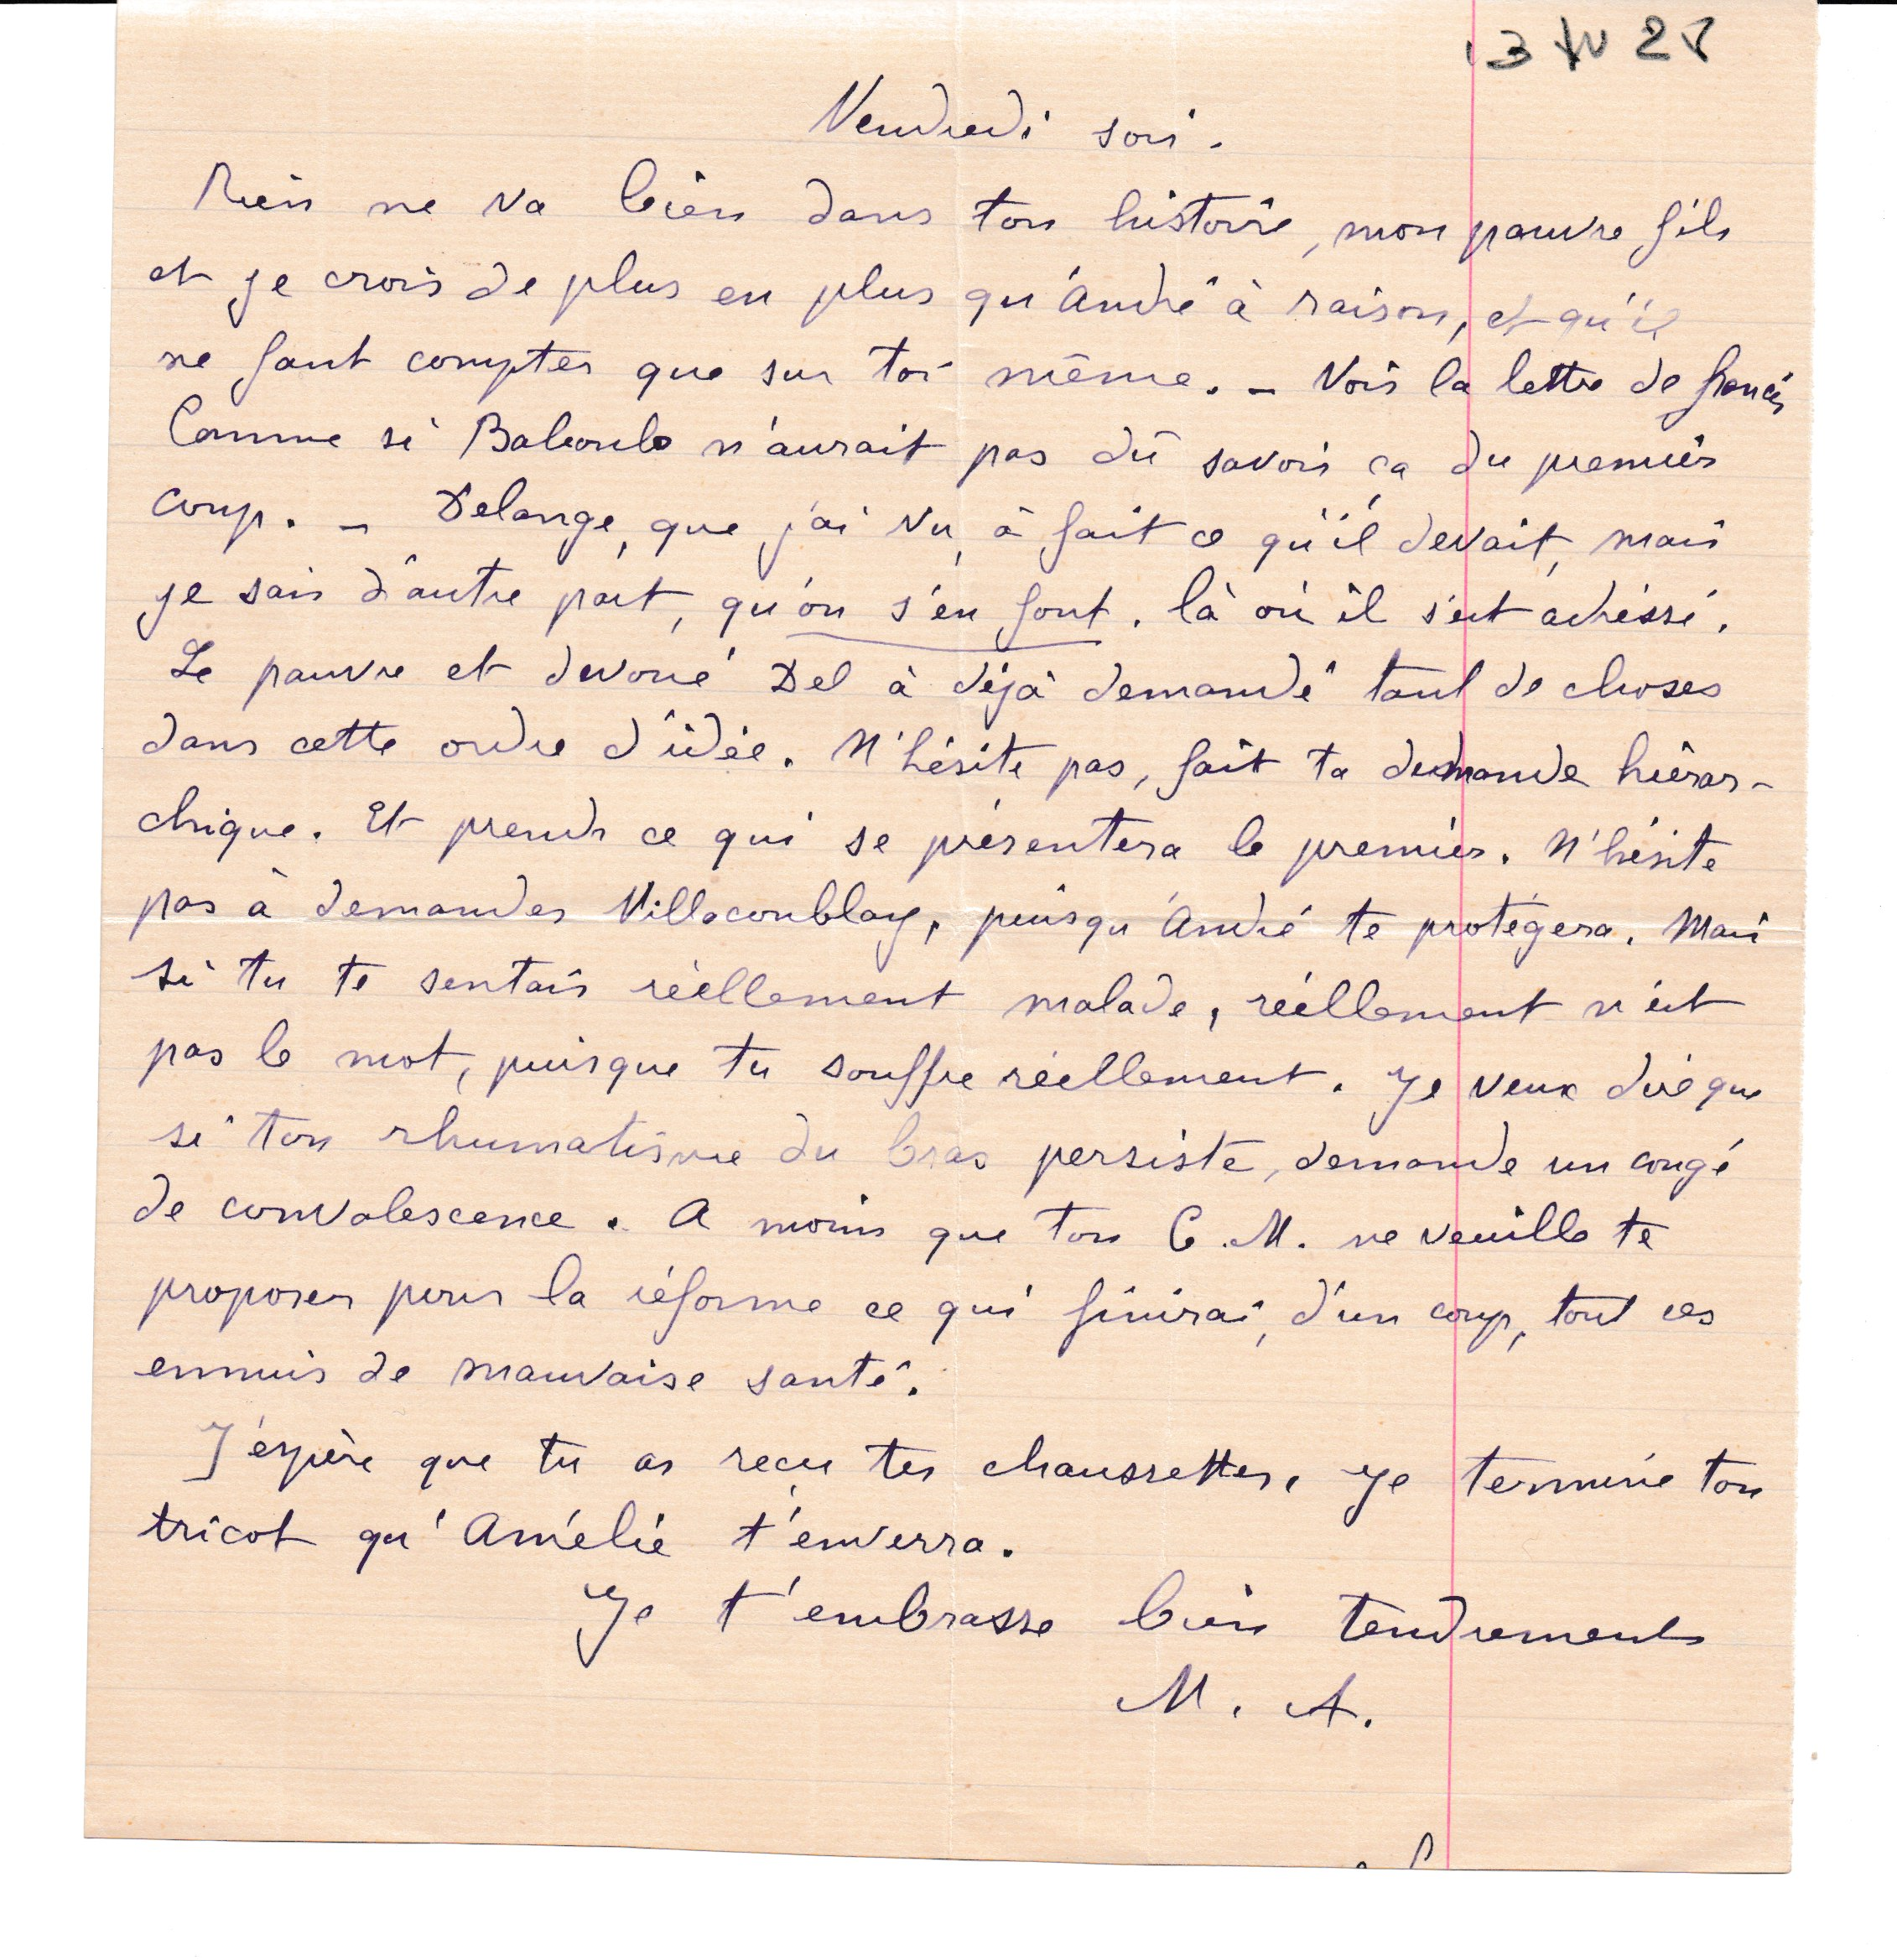 Vendredi soir.
Rien ne va bien dans ton histoire, mon pauvre fils
et je crois de plus en plus qu'André à raison, et qu'il
ne faut compter que sur toi même. - Vois la lettre de
Comme si n'aurait pas dû savoir ça du premier
coup. - Delange, que j'ai vu, à fait ce qu'il devait, mais
je sais d'autre part, qu'on s'en fout, là où il s'est adréssé.
Le pauvre et devoué Del à déjà demandé tant de choses
dans cette ordre d'idée. N'hésite pas, fait ta demande hiérar-
chique. Et prends ce qui se présentera le premier. N'hésite
pas à demander Villacoublay, puisqu'André te protégera. Mais
si tu te sentais réellement malade, réellement n'est
pas le mot, puisque tu souffre réellement. Je veux dire que
si ton rhumatisme du bras persiste, demande un congé
de convalescence. A moins que ton C.M. ne veuille te
proposer pour la réforme ce qui finirai, d'un coup, tout ces
ennuis de mauvaise santé.
J'éspère que tu as reçu tes chaussettes, je termine ton
tricot qu'Amélie t'enverra.
Je t'embrasse bien tendrement
M. A.